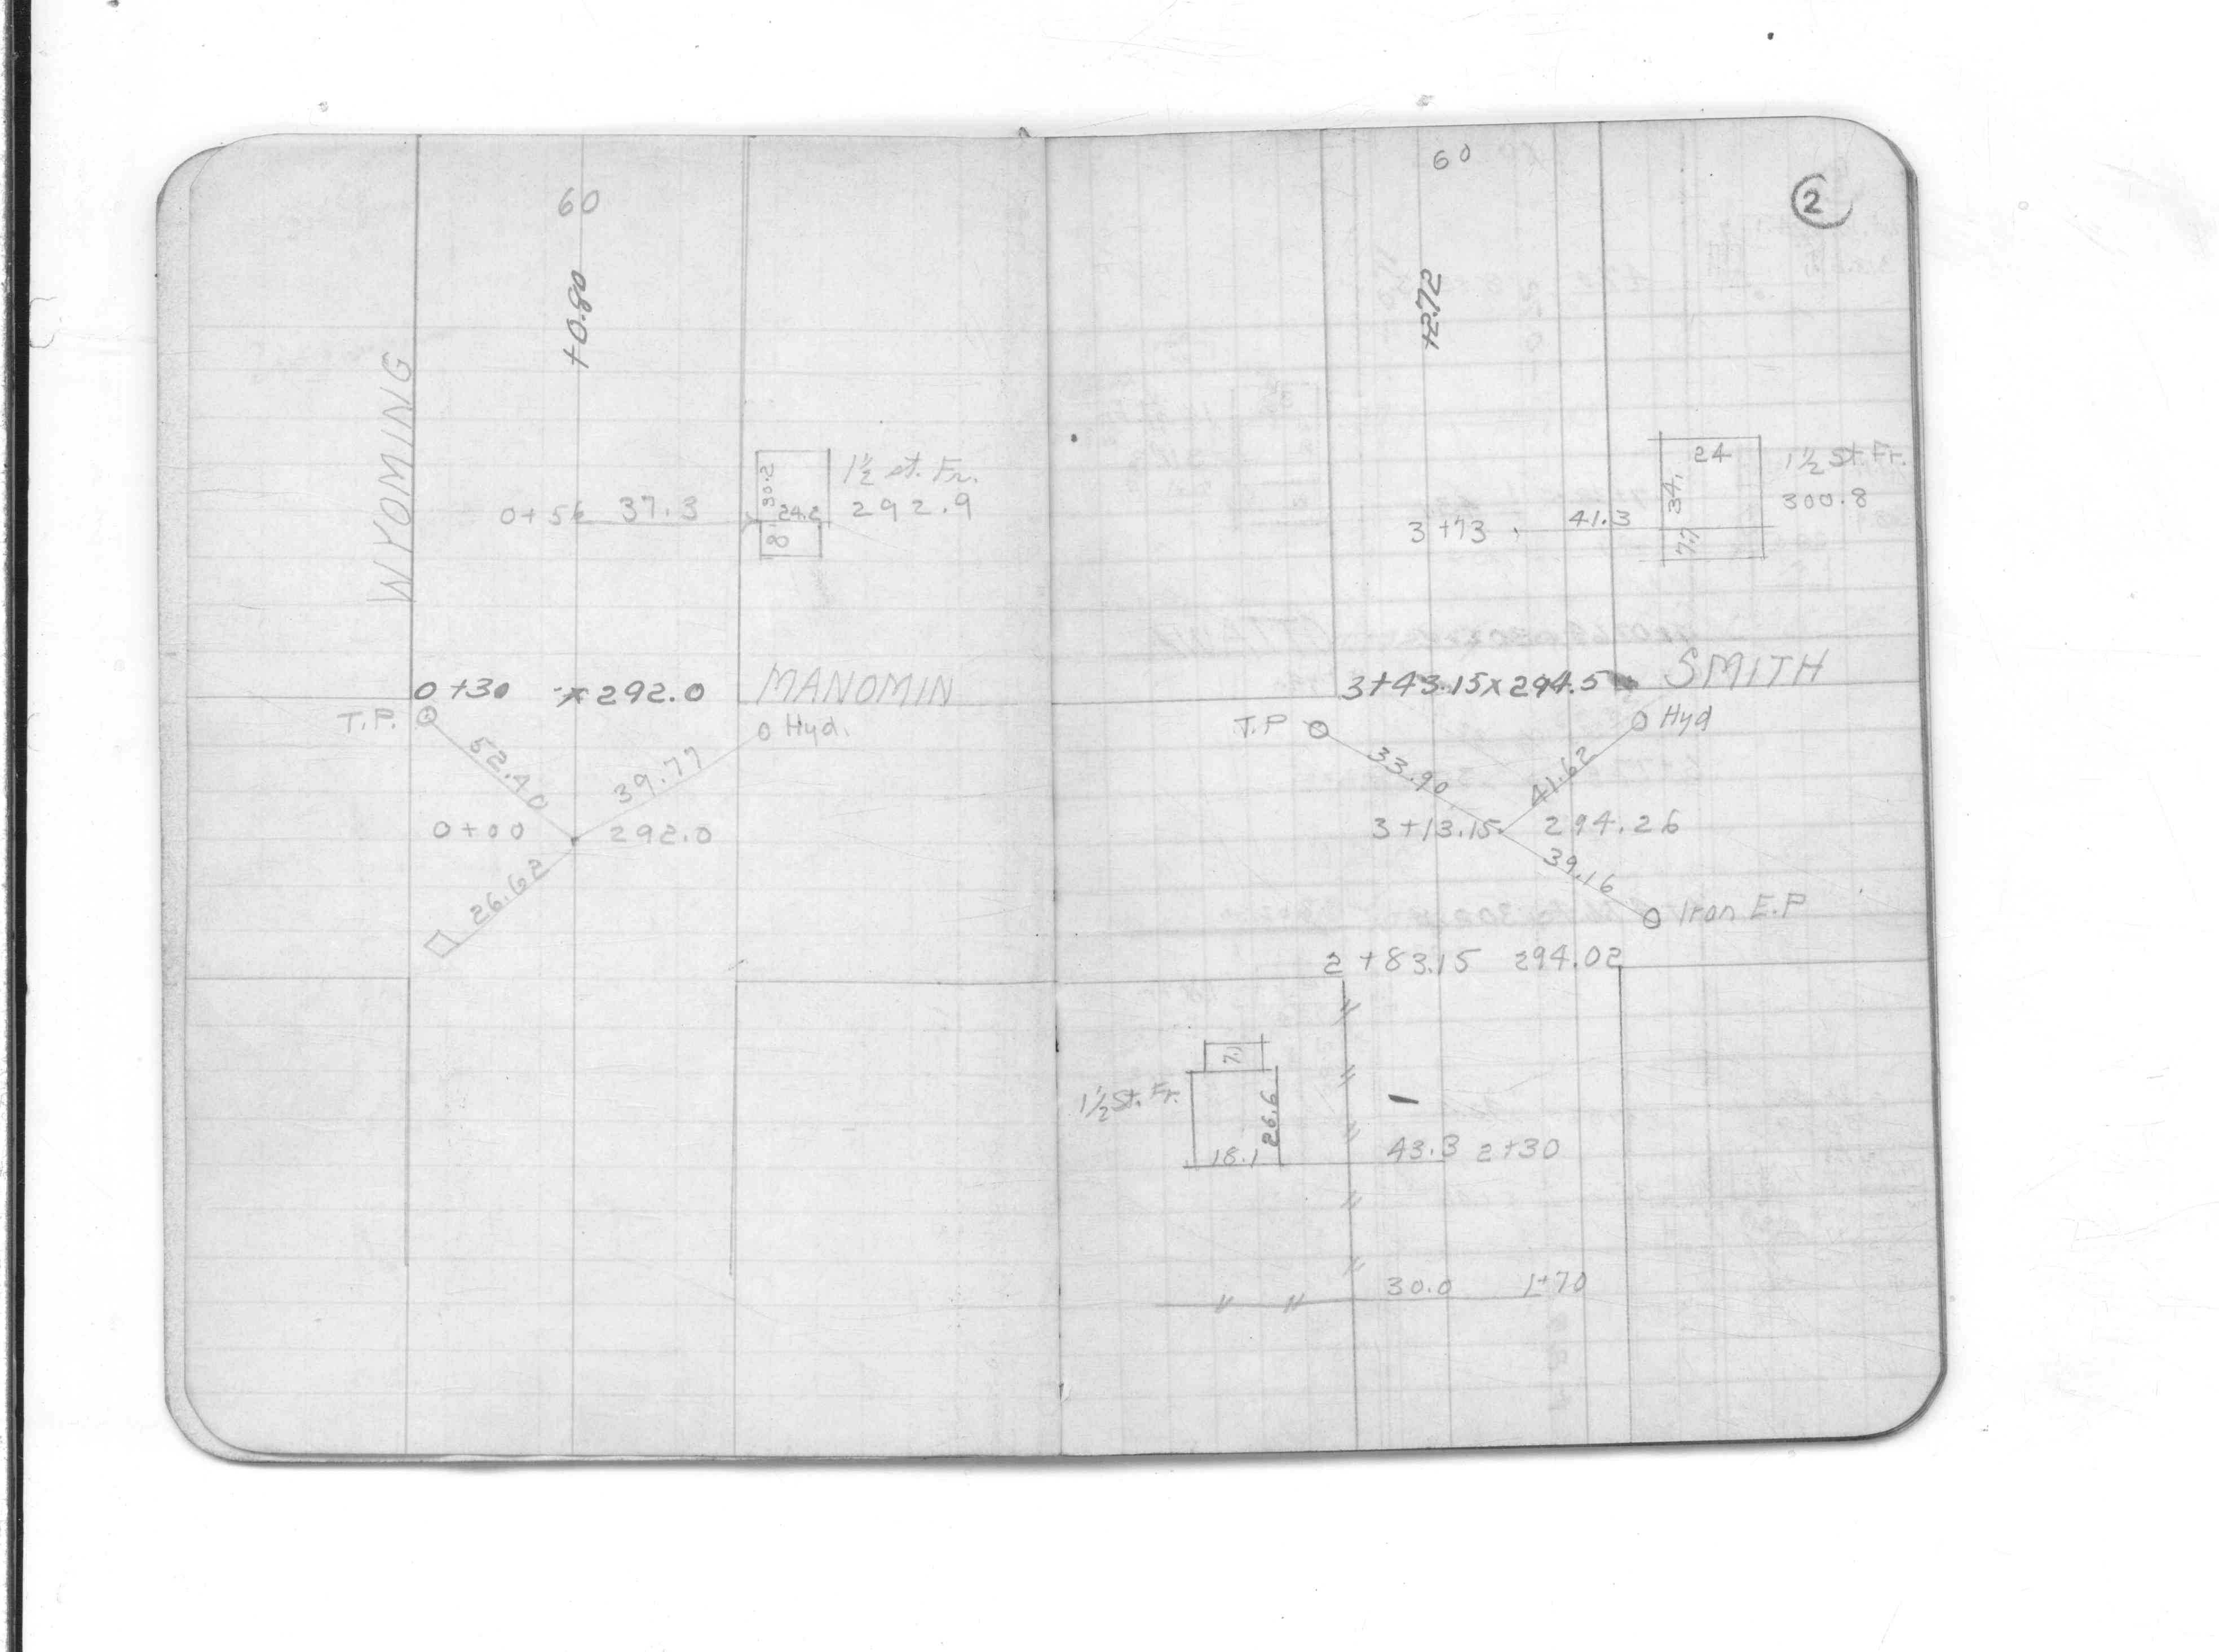 60
+0.80
WYOMING
30.2
1½ st. Fr.
0+56 37.3
24.2
292.9
8
0+30 x 292.0
MANOMIN
T.P.
Hyd.
52.40
39.77
0+00
292.0
26.62
60
2
+2.72
24
1½ St. Fr.
34.
300.8
3+73
41.3
7.7
SMITH
3+43.15 x 294.5
T.P
Hyd
33.90
41.62
3+13.15
294.26
39.16
Iron E.P
2+83.15 294.02
7.1
1½ St. Fr.
26.6
18.1
43.3 2+30
30.0 1+70